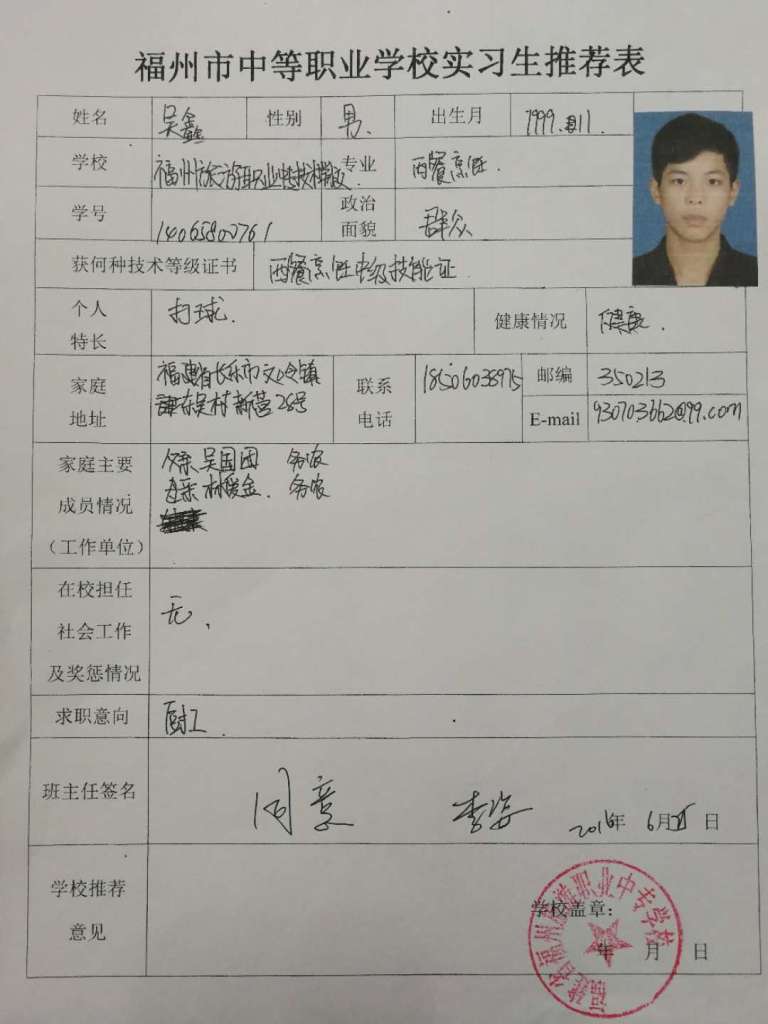 福州市中等职业学校实习生推荐表
姓名 吴鑫 性别 男. 出生月 1999.11.
学校 福州旅游职业中专学校 专业 西餐烹饪.
学号 14065800761 政治面貌 群众
获何种技术等级证书 西餐烹饪中级技能证
个人特长 打球. 健康情况 健康.
家庭地址 福建省长乐市文岭镇
东吴村新营28号
联系电话 18506038975 邮编 350213
E-mail 930703662@qq.com
家庭主要成员情况(工作单位) 父亲 吴国团 务农
母亲 林爱金. 务农
在校担任社会工作及奖惩情况 无.
求职意向 厨工
班主任签名 同意 李姿 2016年 6月 日
学校推荐意见
学校盖章:
年 月 日
福建省福州旅游职业中专学校